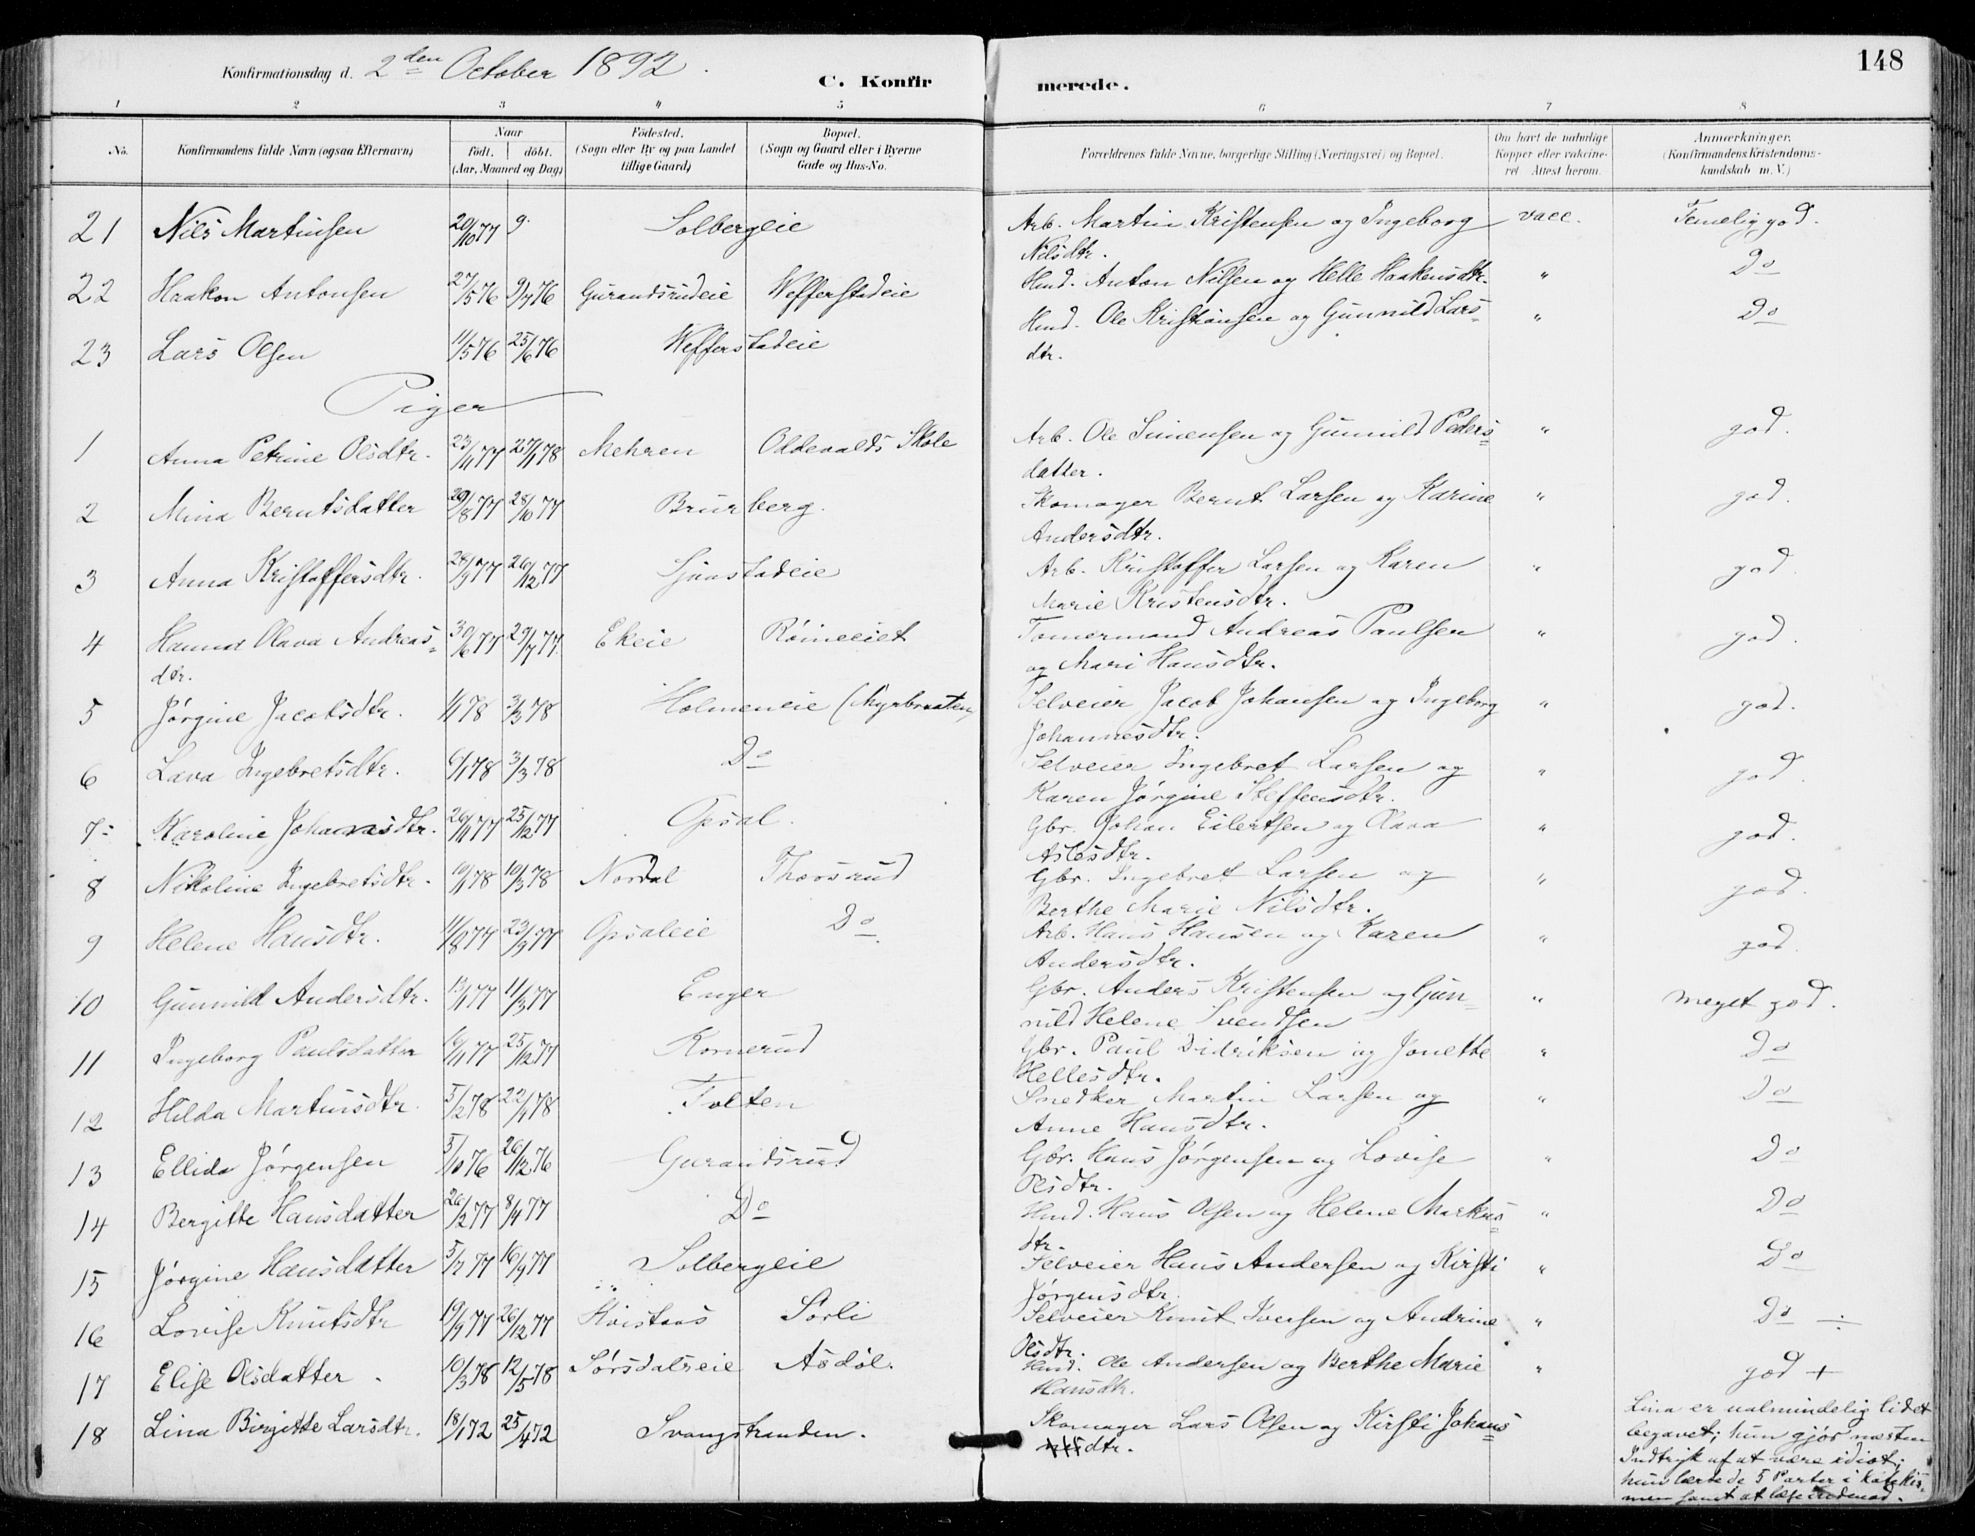 148
Konfirmationsdag d. 2den October 1892.
C. Konfirmerede.
1 2 3 4 5 6 7 8
No. Konfirmandens fulde Navn (ogsaa Efternavn) Naar födt. döbt. (Aar, Maaned og Dag) Födested. (Sogn eller By og paa Landet tillige Gaard) Bopæl. (Sogn og Gaard eller i Byerne Gade og Hus-No. Forældrenes fulde Navne, borgerlige Stilling (Næringsvei) og Bopæl. Om havt de naturlige Kopper eller vaccineret. Attest herom. Anmærkninger. (Konfirmandens Kristendomskundskab m. V.)
21 Nils Martinsen 20/10 77 9. Solbergeie Arb. Martin Kristensen og Ingeborg vacc. Temelig god.
Nilsdtr.
22 Haakon Antonsen 27/5 76 9/7 76 Gurandsrudeie Wefferstadeie Hmd. Anton Nilsen og Helle Haakensdtr. " Do
23 Lars Olsen 11/5 76 25/6 76 Wefferstadeie Hmd. Ole Kristiansen og Gunnild Lars= " Do
dtr.
Piger
1 Anna Petrine Olsdtr. 23/11 77 27/1 78 Mehren Oldevalds Skole Arb. Ole Simensen og Gunnild Peders= " god.
datter.
2 Mina Berntsdatter 29/8 77 28/10 77 Brurberg. Skomager Bernt Larsen og Karine " god.
Andersdtr.
3 Anna Kristoffersdtr. 28/9 77 26/12 77 Sjaastadeie Arb. Kristoffer Larsen og Karen " god.
Marie Kristensdtr.
4 Hanna Olava Andreas= 30/6 77 29/7 77. Ekeie Røineeiet Tømermand Andreas Paulsen " god.
dtr. og Mari Hansdtr.
5 Jørgine Jacobsdtr. 1/1 78 3/3 78 Holmeneie (Myrbraaten) Selveier Jacob Johansen og Ingeborg " god.
Johannesdtr.
6 Lava Ingebretsdtr. 6/1 78 3/3 78 Do Selveier Ingebret Larsen og " god.
Karen Jørgine Steffensdtr.
7 Karoline Johansdtr. 26/11 77 25/12 77 Opsal. Gbr. Johan Eilertsen og Olava " god.
Aslesdtr.
8 Nikoline Ingebretsdtr. 10/1 78 10/3 78 Nordal Thorsrud Gbr. Ingebret Larsen og " god.
Berthe Marie Nilsdtr.
9 Helene Hansdtr. 11/8 77 23/9 77 Opsaleie Do. Arb. Hans Hansen og Karen " god.
Andersdtr.
10 Gunnild Andersdtr. 13/1 77 11/3 77 Enger Gbr. Anders Kristensen og Gun- " meget god.
nild Helene Svendsen
11 Ingeborg Paulsdatter 16/11 77 25/12 77 Kornerud Gbr. Paul Didriksen og Jonette " Do
Hellesdtr.
12 Hilda Martinsdtr. 5/2 78 22/4 78 Tveten Snedker Martin Larsen og " Do
Anne Hansdtr.
13 Ellida Jørgensen 5/10 76 26/12 76 Gurandsrud Gbr. Hans Jørgensen og Lovise " Do
Olsdtr.
14 Bergitte Hansdatter 26/2 77 8/4 77 Do Hmd. Hans Olsen og Helene Markus= " Do
dtr.
15 Jørgine Hansdatter 5/7 77 16/9 77 Solbergeie Selveier Hans Andersen og Kirsti " Do
Jørgensdtr.
16 Lovise Knutsdtr 19/9 77 26/12 77 Kvistaas Sørli Selveier Knut Iversen og Andrine " Do ÷
Olsdtr.
17 Elise Olsdatter. 10/3 78 12/5 78 Sørsdalseie Asdøl. Hmd. Ole Andersen og Berthe Marie " god +
Hansdtr.
18 Lina Birgitte Larsdtr. 18/1 72 25/4 72 Svangstranden. Skomager Lars Olsen og Kirsti Johans=
dtr.
Lina er ualmindelig lidet
begavet; hun gjør næsten
Indtryk af at være idiot;
hun lærte de 5 Parter i katekis-
men samt at læse indenad.